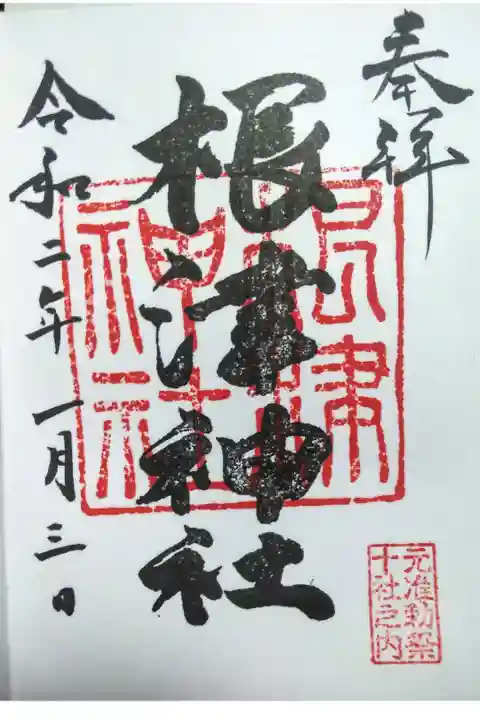 奉拝
根津神社
根津神社
元准勅祭
十社之内
令和二年一月三日